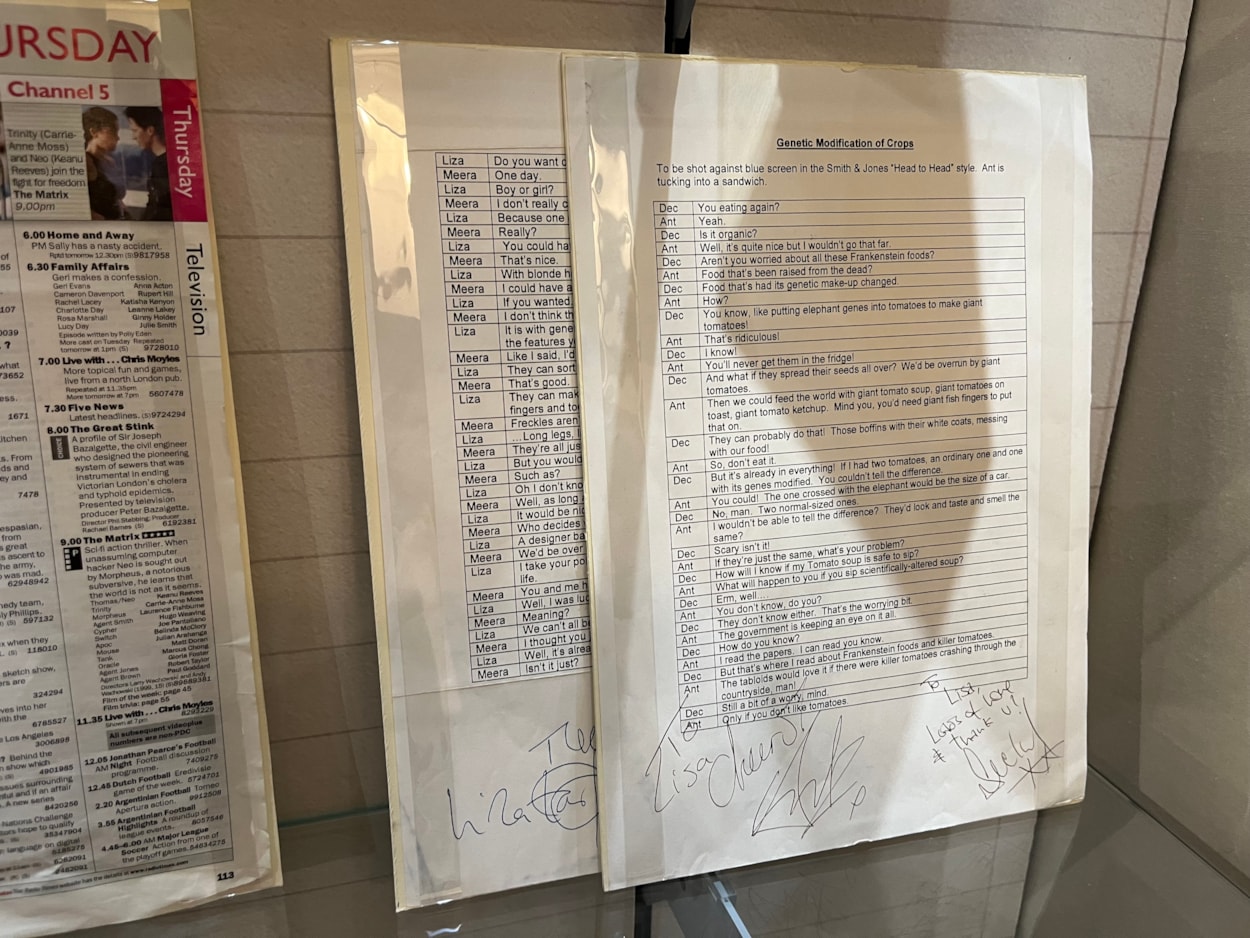 URSDAY
Channel 5
Thursday
Trinity (Carrie-
Anne Moss)
and Neo (Keanu
Reeves) join the
fight for freedom
The Matrix
9.00pm
Television
6.00 Home and Away
PM Sally has a nasty accident.
Rptd tomorrow 12.30pm (S)9817958
6.30 Family Affairs
Geri makes a confession.
Geri Evans Anna Acton
Cameron Davenport Rupert Hill
Rachel Lacey Katisha Kenyon
Charlotte Day Leanne Lakey
Rosa Marshall Ginny Holder
Lucy Day Julie Smith
Episode written by Polly Eden
More cast on Tuesday Repeated
tomorrow at 1pm (S) 9728010
7.00 Live with... Chris Moyles
More topical fun and games,
live from a north London pub.
Repeated at 11.35pm
More tomorrow at 7pm 5607478
7.30 Five News
Latest headlines. (S)9724294
8.00 The Great Stink
CHOICE
A profile of Sir Joseph
Bazalgette, the civil engineer
who designed the pioneering
system of sewers that was
instrumental in ending
Victorian London's cholera
and typhoid epidemics.
Presented by television
producer Peter Bazalgette.
Director Phil Stebbing; Producer
Rachael Barnes (S) 6192381
9.00 The Matrix
Sci-fi action thriller. When
unassuming computer
hacker Neo is sought out
by Morpheus, a notorious
subversive, he learns that
the world is not as it seems.
Thomas/Neo Keanu Reeves
Trinity Carrie-Anne Moss
Morpheus Laurence Fishburne
Agent Smith Hugo Weaving
Cypher Joe Pantoliano
Switch Belinda McClory
Apoc Julian Arahanga
Mouse Matt Doran
Tank Marcus Chong
Oracle Gloria Foster
Agent Jones Robert Taylor
Agent Brown Paul Goddard
Directors Larry Wachowski and Andy
Wachowski (1999, 15) (S)
Film of the week: page 45
Film trivia: page 55
11.35 Live with... Chris Moyles
Shown at 7pm
All subsequent videoplus
numbers are non-PDC
12.05 Jonathan Pearce's Football
AM Night Football discussion
programme. 7409275
12.45 Dutch Football Eredivisie
game of the week. 5724701
2.20 Argentinian Football Torneo
Apertura action. 9912508
3.55 Argentinian Football
Highlights A roundup of
league events. 8057546
4.45-6.00 AM Major League
Soccer Action from one of
the playoff games. 84634275
113
Liza Do you want
Meera One day.
Liza Boy or girl?
Meera I don't really
Liza Because one
Meera Really?
Liza You could ha
Meera That's nice.
Liza With blonde h
Meera I could have a
Liza If you wanted,
Meera I don't think th
Liza It is with gene
the features y
Meera Like I said, I'd
Liza They can sort
Meera That's good.
Liza They can mak
fingers and to
Meera Freckles aren
Liza ...Long legs,
Meera They're all jus
Liza But you would
Meera Such as?
Liza Oh I don't kno
Meera Well, as long
Liza It would be nic
Meera Who decides
Liza A designer ba
Meera We'd be over
Liza I take your po
life.
Meera You and me h
Liza Well, I was luc
Meera Meaning?
Liza We can't all b
Meera I thought you
Liza Well, it's alrea
Meera Isn't it just?
Liza
Genetic Modification of Crops
To be shot against blue screen in the Smith & Jones "Head to Head" style. Ant is
tucking into a sandwich.
Dec You eating again?
Ant Yeah.
Dec Is it organic?
Ant Well, it's quite nice but I wouldn't go that far.
Dec Aren't you worried about all these Frankenstein foods?
Ant Food that's been raised from the dead?
Dec Food that's had its genetic make-up changed.
Ant How?
Dec You know, like putting elephant genes into tomatoes to make giant
tomatoes!
Ant That's ridiculous!
Dec I know!
Ant You'll never get them in the fridge!
Dec And what if they spread their seeds all over? We'd be overrun by giant
tomatoes.
Ant Then we could feed the world with giant tomato soup, giant tomatoes on
toast, giant tomato ketchup. Mind you, you'd need giant fish fingers to put
that on.
Dec They can probably do that! Those boffins with their white coats, messing
with our food!
Ant So, don't eat it.
Dec But it's already in everything! If I had two tomatoes, an ordinary one and one
with its genes modified. You couldn't tell the difference.
Ant You could! The one crossed with the elephant would be the size of a car.
Dec No, man. Two normal-sized ones.
Ant I wouldn't be able to tell the difference? They'd look and taste and smell the
same?
Dec Scary isn't it!
Ant If they're just the same, what's your problem?
Dec How will I know if my Tomato soup is safe to sip?
Ant What will happen to you if you sip scientifically-altered soup?
Dec Erm, well....
Ant You don't know, do you?
Dec They don't know either. That's the worrying bit.
Ant The government is keeping an eye on it all.
Dec How do you know?
Ant I read the papers. I can read you know.
Dec But that's where I read about Frankenstein foods and killer tomatoes.
Ant The tabloids would love it if there were killer tomatoes crashing through the
countryside, man!
Dec Still a bit of a worry, mind.
Ant Only if you don't like tomatoes.
To
Lisa
Cheers!
To
Lisa,
Lots of love
& thank u!